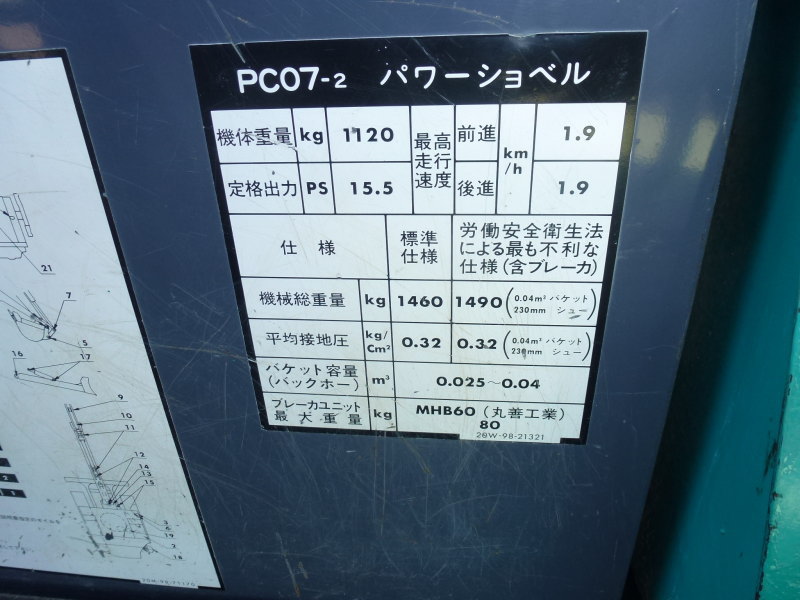 PC07-2 パワーショベル
機体重量 kg 1120 最高走行速度 前進 km/h 1.9
定格出力 PS 15.5 後進 1.9
仕様 標準仕様 労働安全衛生法による最も不利な仕様(含ブレーカ)
機械総重量 kg 1460 1490 (0.04m³ バケット 230mm シュー)
平均接地圧 kg/Cm² 0.32 0.32 (0.04m³ バケット 230mm シュー)
バケット容量(バックホー) m³ 0.025~0.04
ブレーカユニット最大重量 kg MHB60 (丸善工業) 80
20W-98-21321
21
7
5
16
17
9
10
11
12
14
13
15
3
6
19
2
18
20M-98-21170